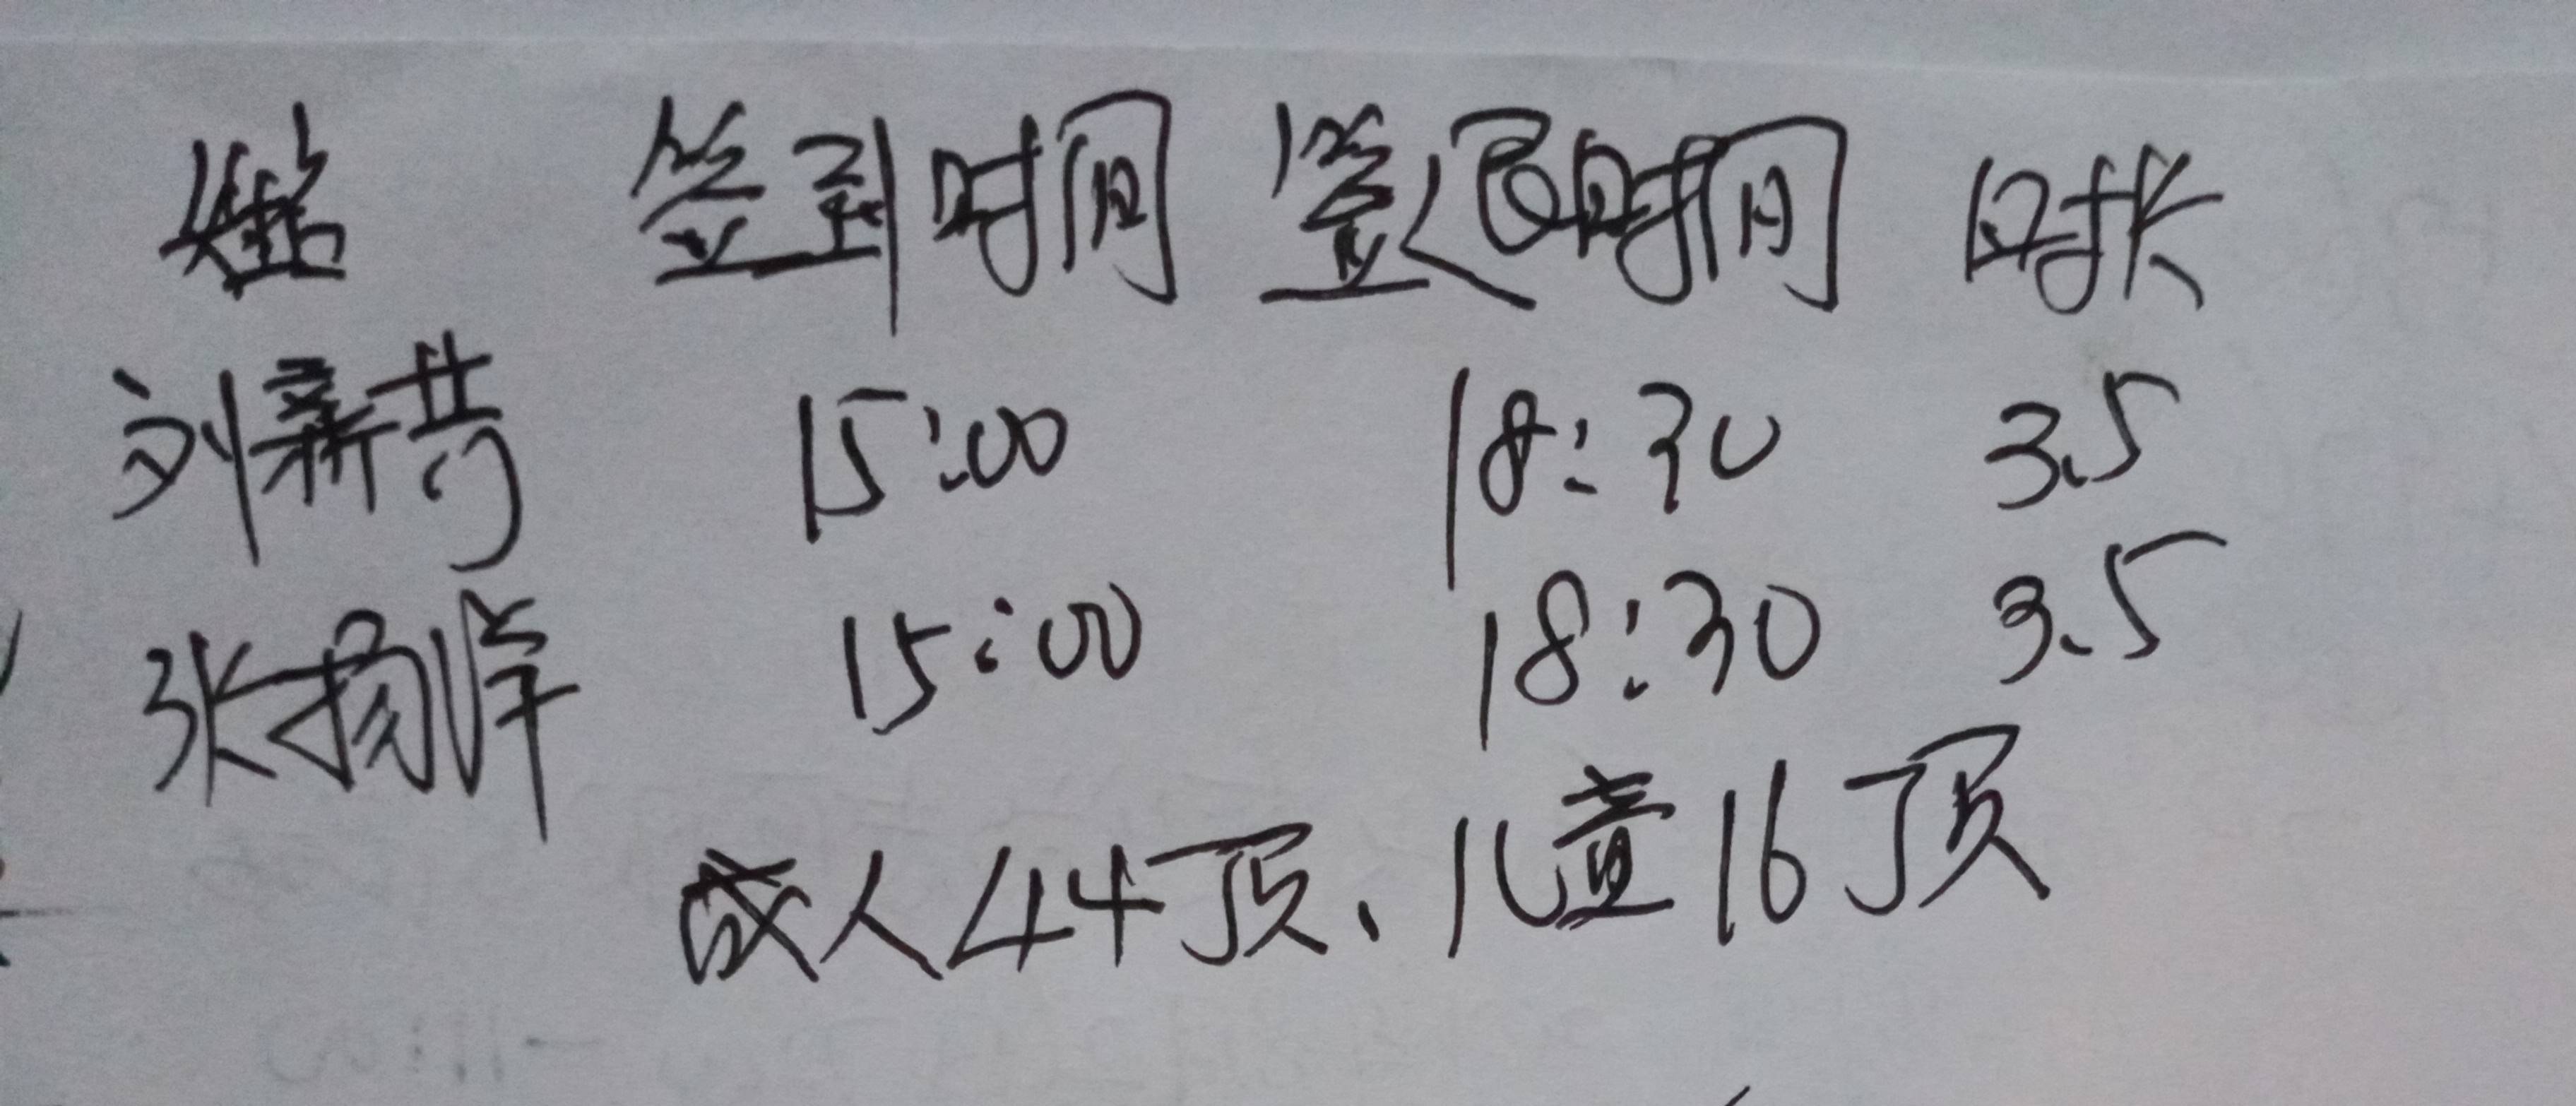 姓名 签到时间 签退时间 时长
刘 15:00 18:30 3.5
张杨洋 15:00 18:30 3.5
成人44顶、儿童16顶